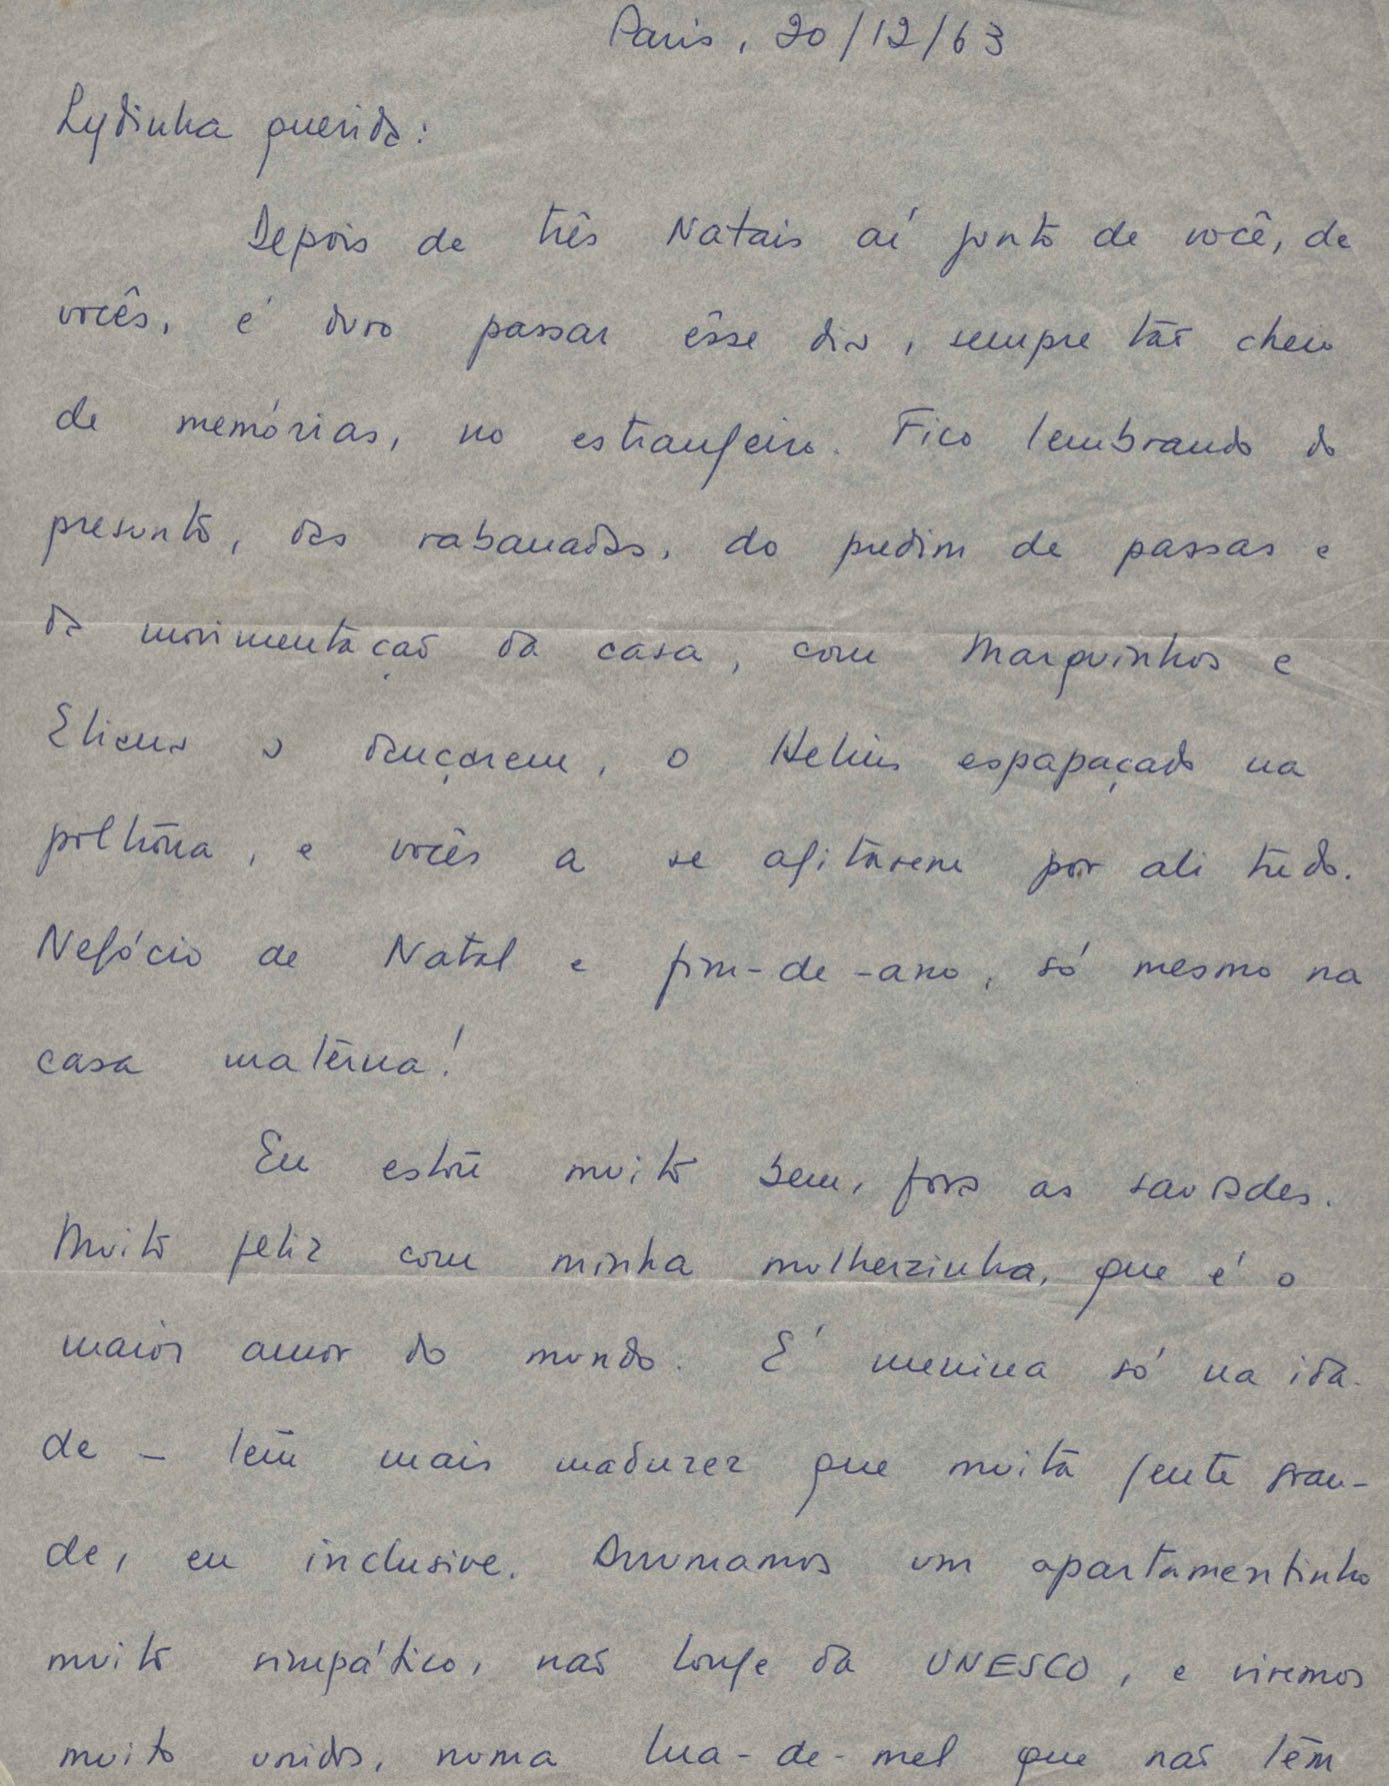 Paris, 20/12/63
Lydinha querida:
Depois de três Natais aí junto de você, de
vocês, é duro passar êsse dia, sempre tão cheio
de memórias, no estrangeiro. Fico lembrando do
presunto, das rabanadas, do pudim de passas e
da movimentação da casa, com Marquinhos e
Eliana a dançarem, o Helius espapaçado na
poltrona, e vocês a se agitarem por ali tudo.
Negócio de Natal e fim-de-ano, só mesmo na
casa materna!
Eu estou muito bem, fora as saudades.
Muito feliz com minha mulherzinha, que é o
maior amor do mundo. É menina só na ida-
de - tem mais madurez que muita gente gran-
de, eu inclusive. Arrumamos um apartamentinho
muito simpático, não longe da UNESCO, e vivemos
muito unidos, numa lua-de-mel que não tem